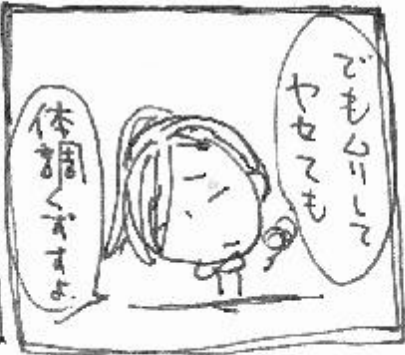 でもムリして
ヤセても
体調くずすよ